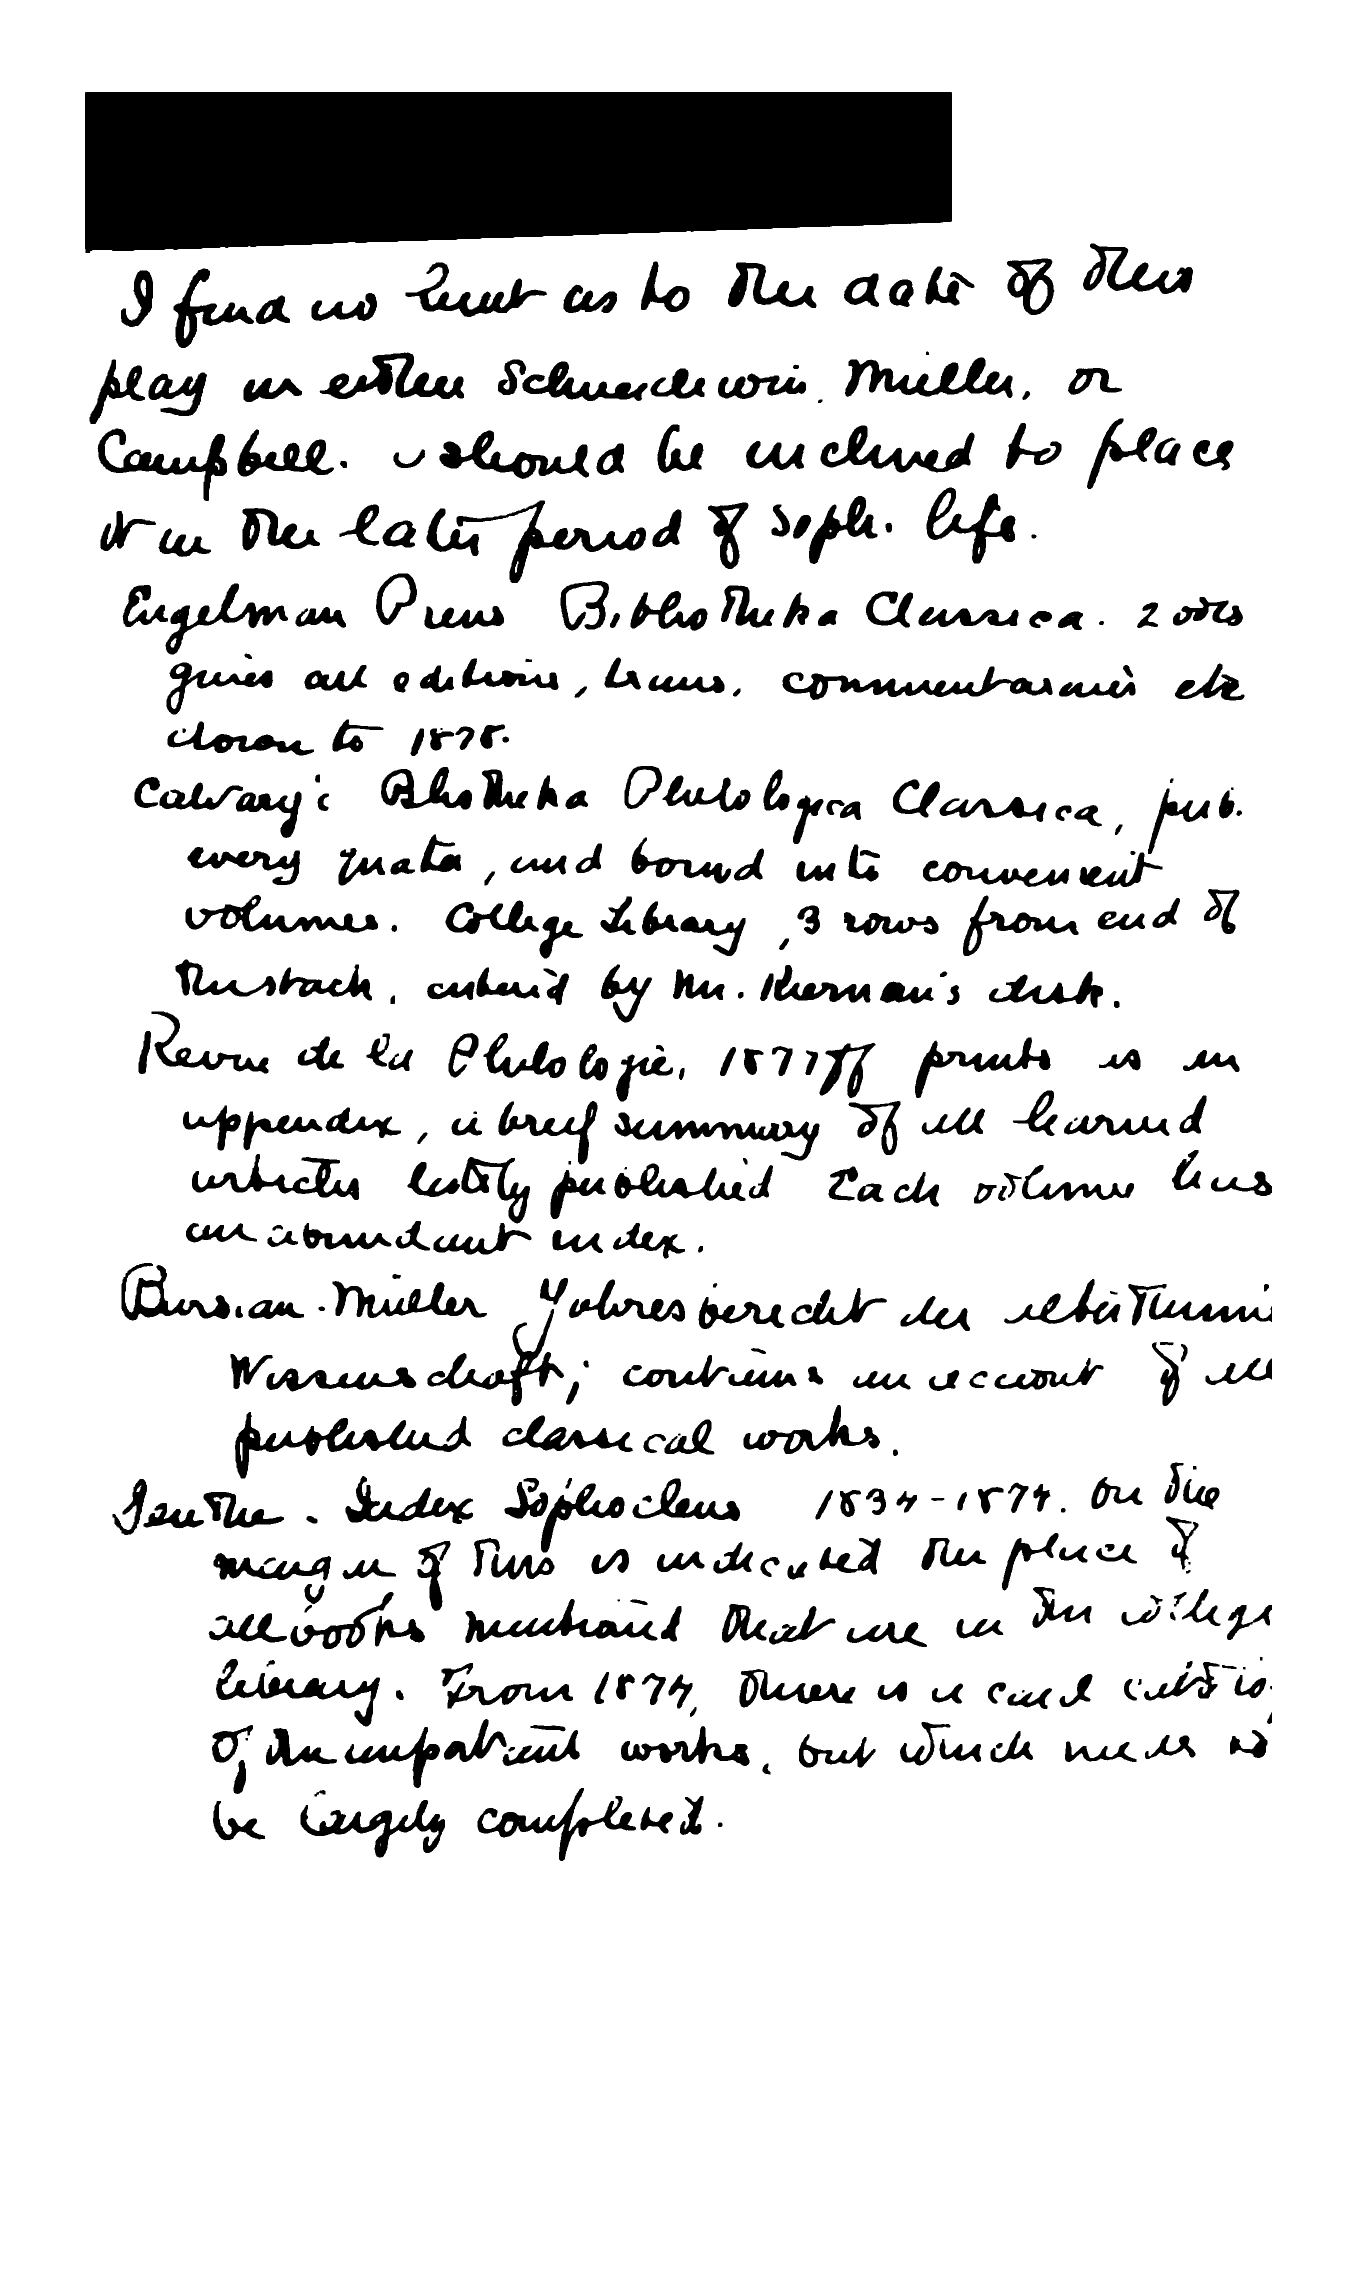 I find no hint as to the date of this
play in either Schneidewin, Müller, or
Campbell. I should be inclined to place
it in the later period of Soph. life.
Engelman Preus Bibliotheka Classica. 2 vols
gives all editions, trans, commentaries etc
down to 1878.
Calvary's Bliotheka Philologica Classica, pub.
every quater, and bound into convenient
volumes. College Library, 3 rows from end of
the stack, entered by Mr. Kiernan's desk.
Revue de la Philologie, 1877ff prints is in
appendix, a brief summary of all learned
articles lately published Each volume has
an abundant index.
Bursian-Müller Jahresbericht der
Wissenschaft; contains an account of all
published classical works.
Genthe. Index Sophocleus 1834-1874. On the
margin of this is indicated the place of
all books mentioned that are in the college
library. From 1874, there is a card
of the important works, but which needs to
be largely completed.